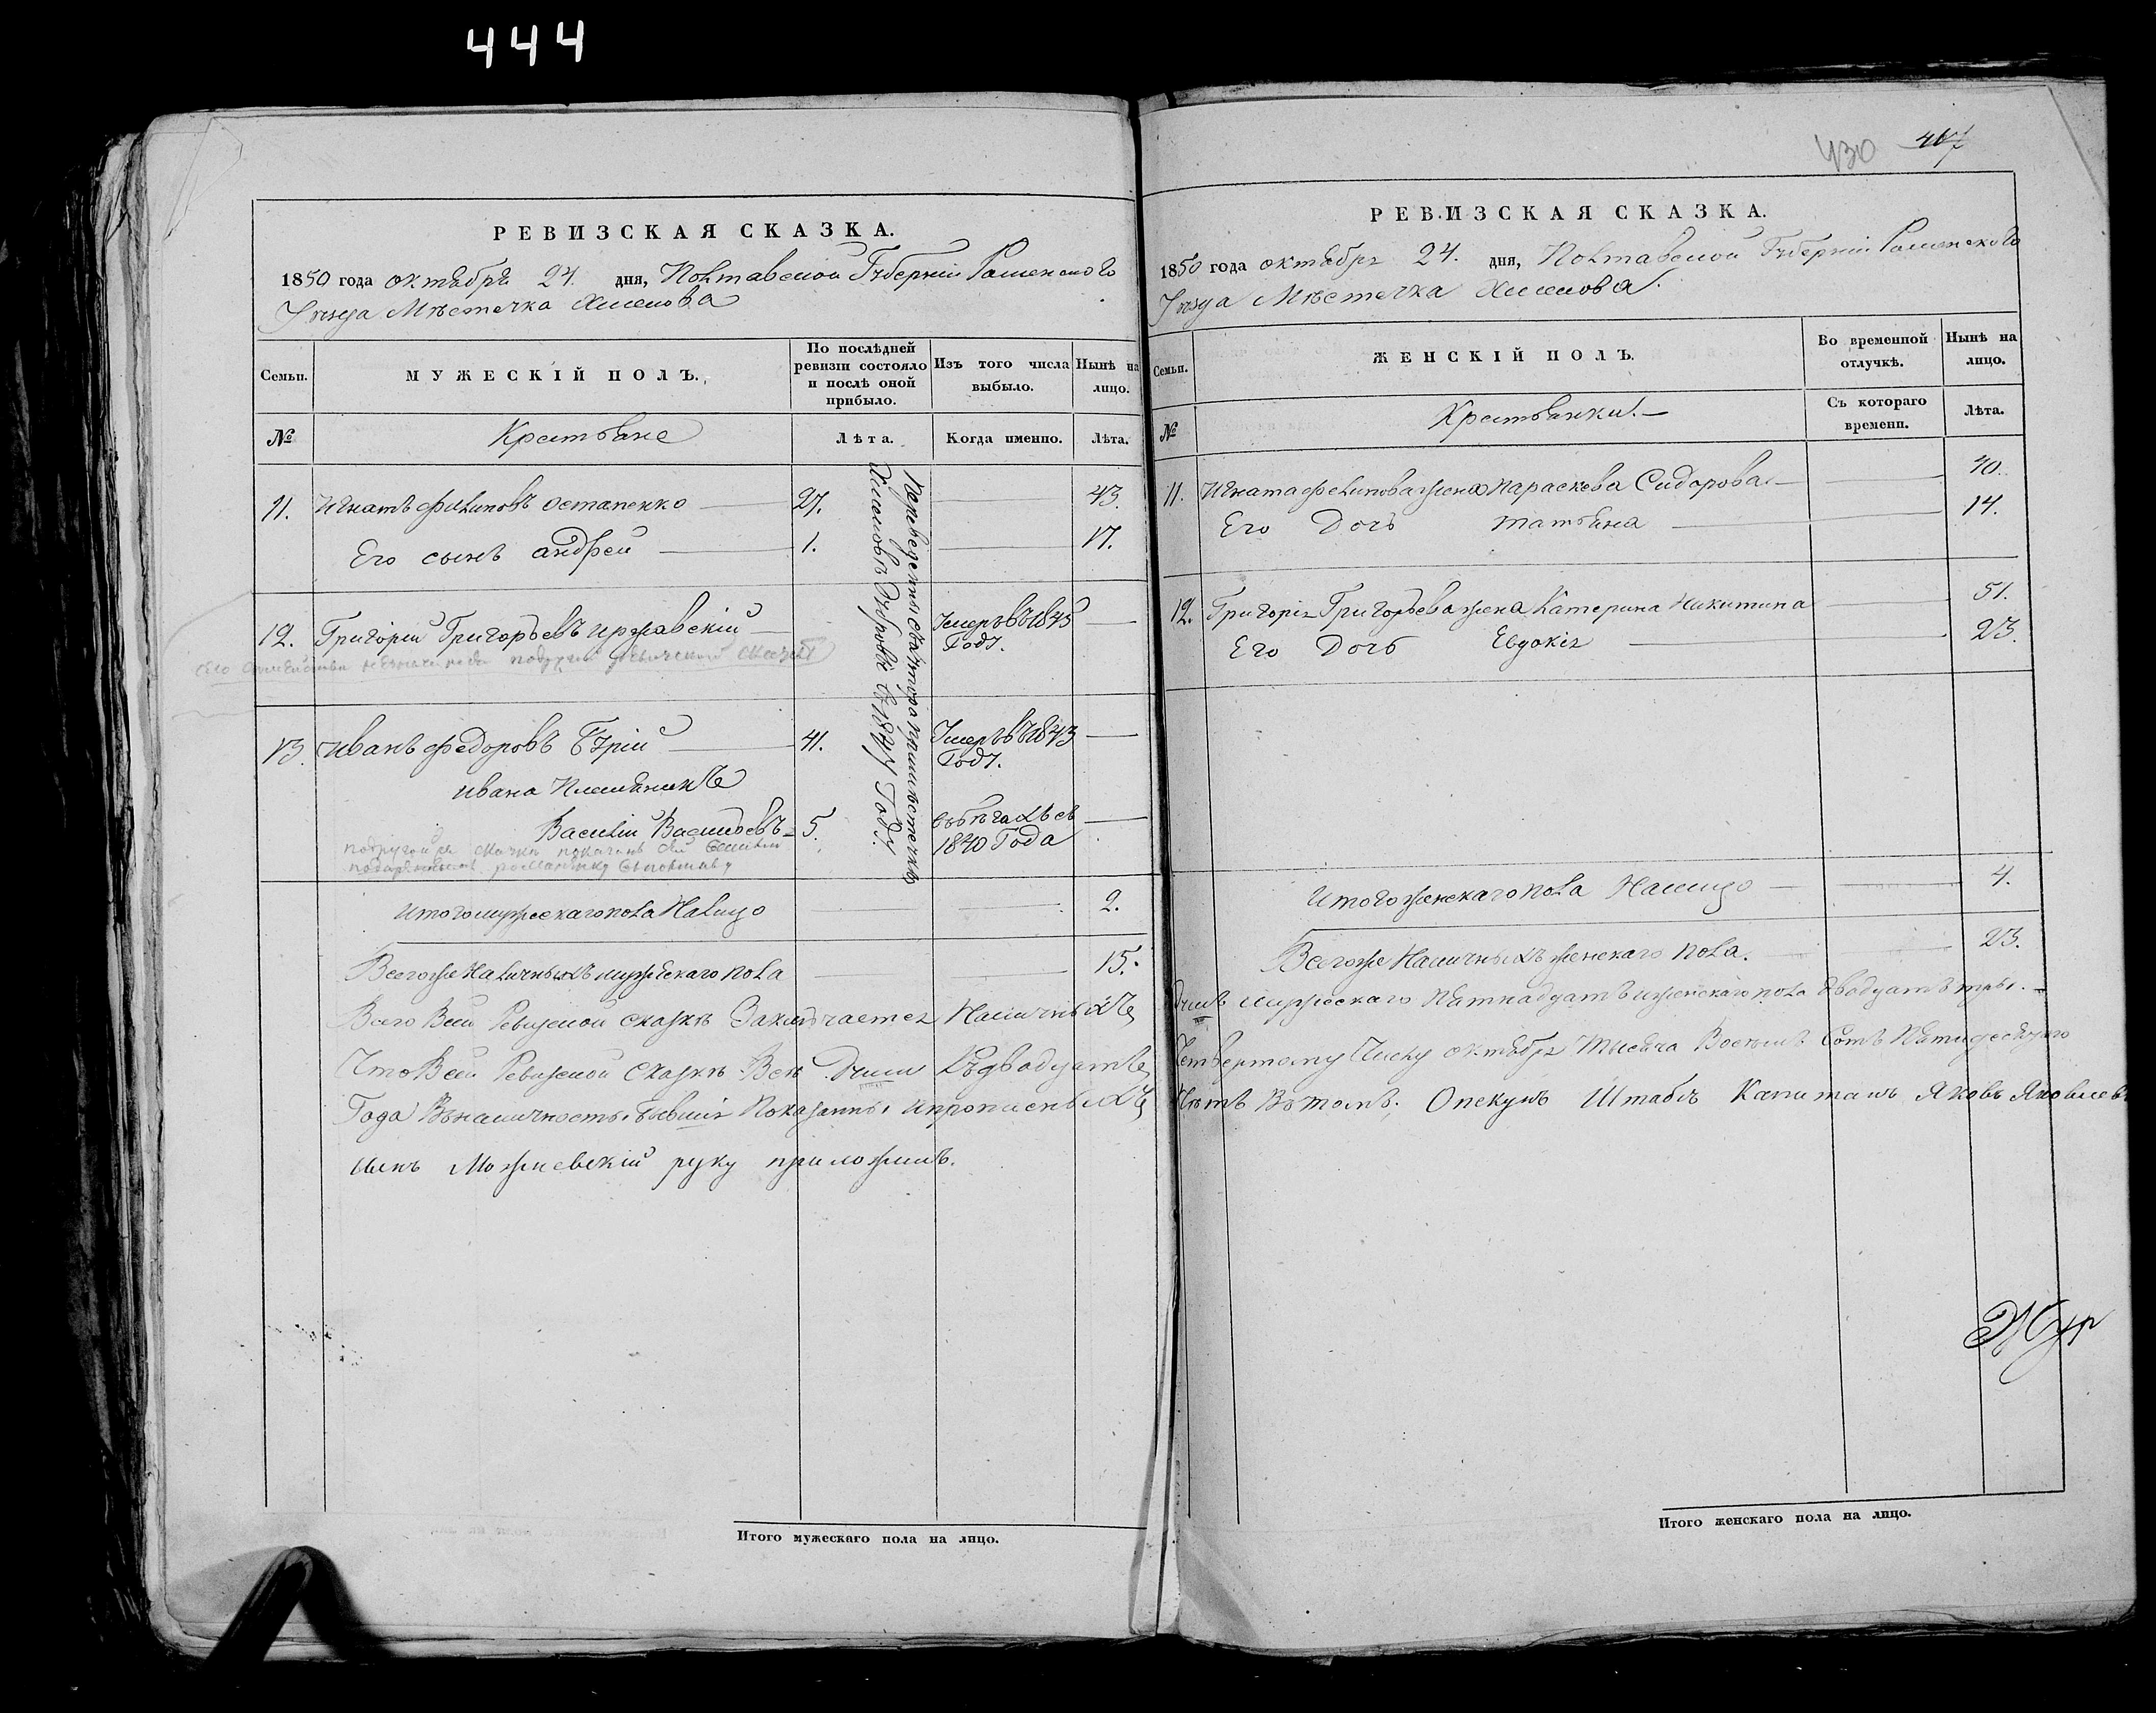 444
РЕВИЗСКАЯ СКАЗКА.
1850 года октября 24. дня, Полтавской Губерніи Роменского
Уезда Мѣстечка Хмелова
Семьи.
МУЖЕСКІЙ ПОЛЪ.
По послѣдней ревизіи состояло и послѣ оной прибыло.
Изъ того числа выбыло.
Нынѣ на лицо.
№
Крестьяне
Лѣта.
Когда именно.
Лѣта.
11. Игнатъ Филиповъ Остапенко 27. 43.
Его сынъ Андрей 1. 17.
12. Григорій Григорьевъ Иржавскій Умеръ въ 1845
Году.
13. Иванъ Федоровъ Бурій 41. Умеръ въ 1843
Году.
Ивана Племяникъ
Василій Васильевъ 5. съ
1840 Года
Итого мужескаго пола Налицо 2.
Всегоже Наличныхъ мужескаго пола 15.
Всего Всей Ревизской сказкѣ Заключается Наличныхъ
Что Всей Ревизской Сказкѣ Всѣ Души Къ двадцать
Года Въналичности бывшія Показанны и прописныхъ
Можневскій руку приложилъ.
Итого мужескаго пола на лицо.
430 417
РЕВИЗСКАЯ СКАЗКА.
1850 года октября 24. дня, Полтавской Губерніи Роменского
Уезда Мѣстечка Хмелова.
Семьи.
ЖЕНСКІЙ ПОЛЪ.
Во временной отлучкѣ.
Нынѣ на лицо.
№
Крестьянки.
Съ котораго времени.
Лѣта.
11. Игната Филипова жена Параскева Сидорова 40.
Его Дочь Татьяна 14.
12. Григорія Григорьева жена Катерина Никитина 51.
Его Дочь Евдокія 23.
Итого женскаго пола Налицо 4.
Всегоже Наличныхъ женскаго пола. 23.
Душъ мужескаго Пятнадцать и женскаго пола двадцать три.
Четвертому Числу октября Тысяча Восемь Сотъ Пятидесятого
Нѣтъ Въ томъ. Опекунъ Штабсъ Капитанъ Яковъ Яковлевъ
Итого женскаго пола на лицо.